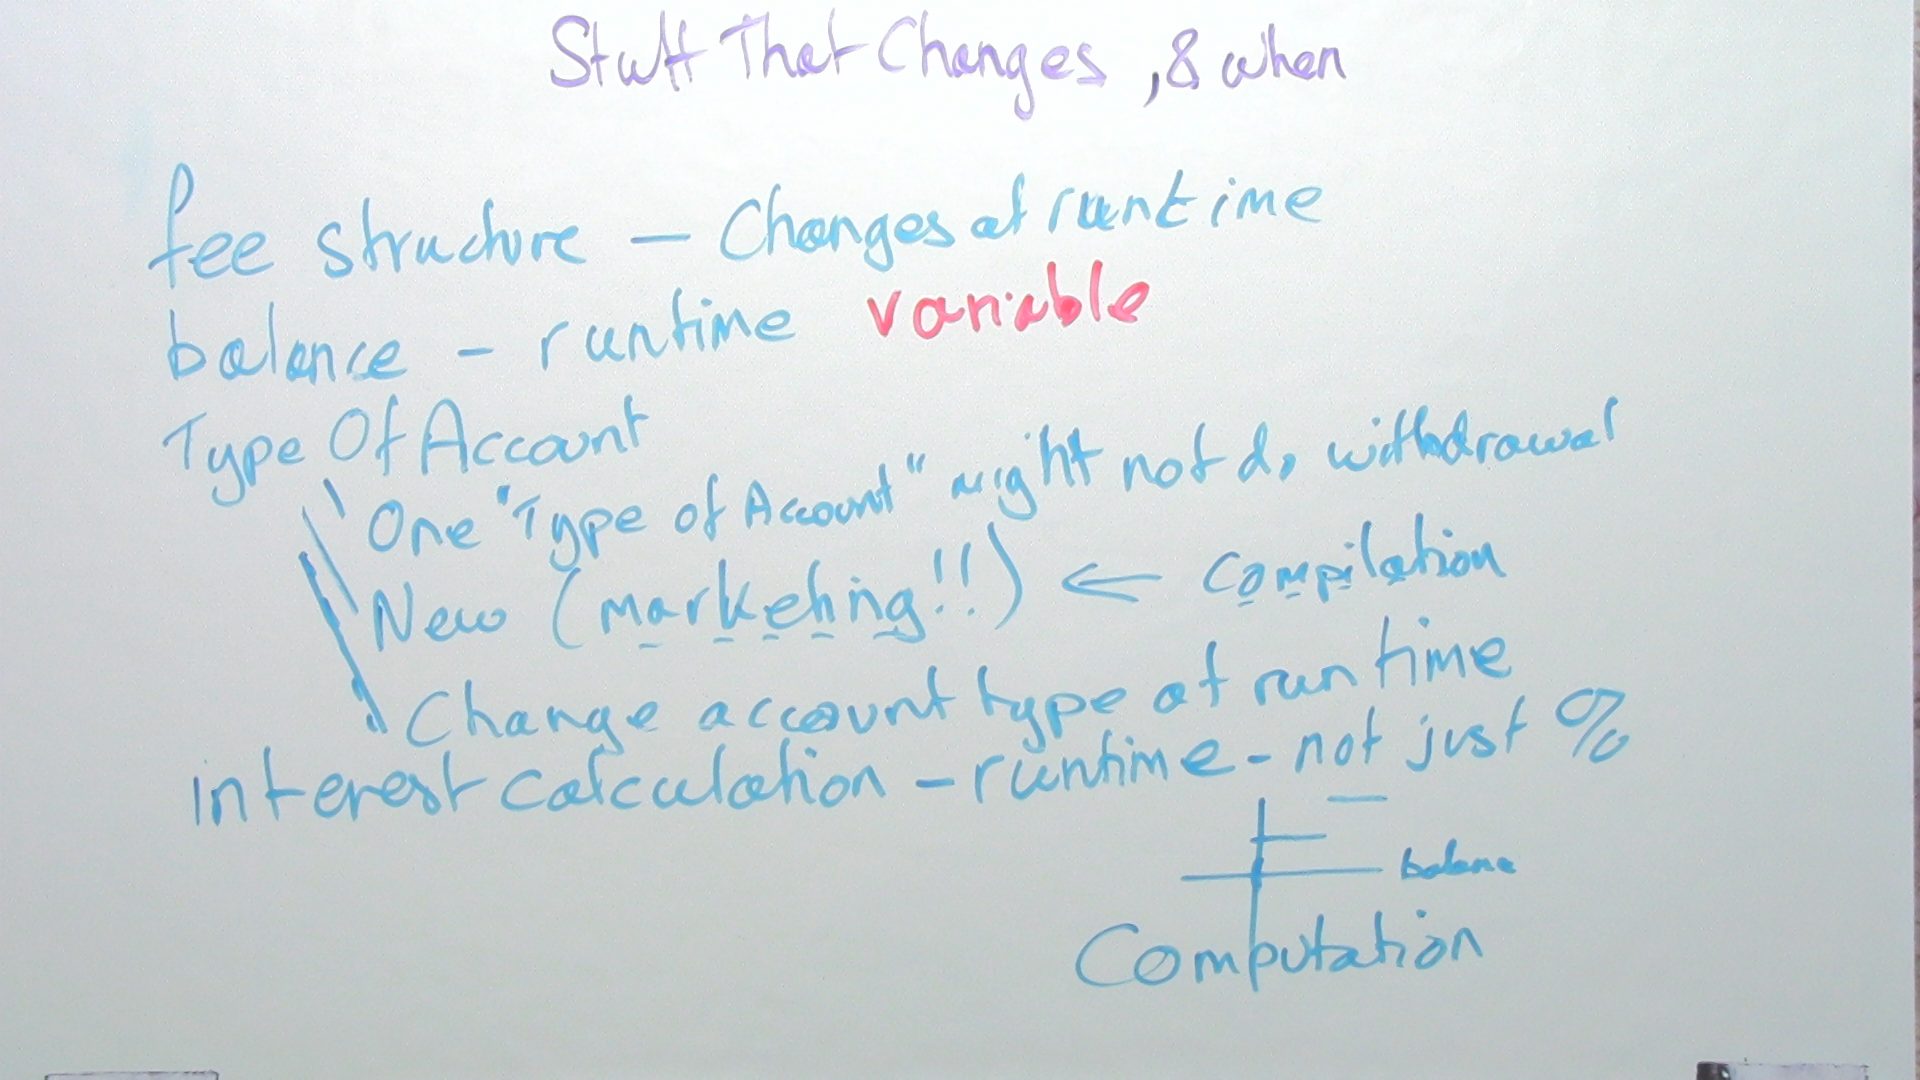 Stuff That Changes, & when
fee structure — Changes at runtime
balance - runtime variable
Type Of Account
One "Type of Account" might not do withdrawal
New (marketing!!) ← Compilation
Change account type at runtime
interest calculation - runtime - not just %
balance
Computation